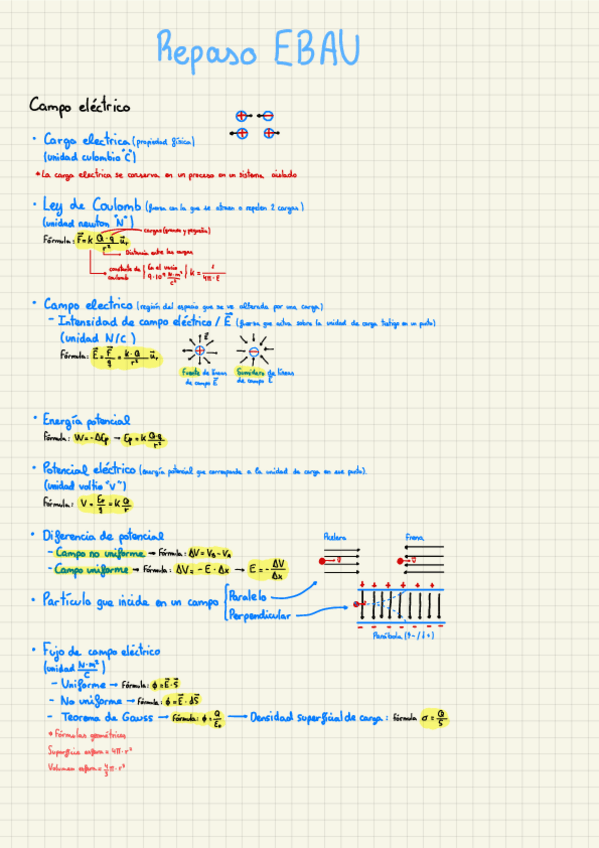 Repaso EBAU
Campo eléctrico
• Carga electrica (propiedad física)
(unidad culombio "C")
* La carga electrica se conserva en un proceso en un sistema aislado
• Ley de Coulomb (fuerza con la que se atraen o repelen 2 cargas)
(unidad newton "N")
cargas (grande y pequeña)
Fórmula: F⃗ = k Q·q/r² u⃗r
Distancia entre las cargas
constante de coulomb { En el vacío 9·10⁹ N·m²/C² } k = 1/4π·ε
• Campo electrico (región del espacio que se ve alterada por una carga)
- Intensidad de campo eléctrico / E⃗ (fuerza que actúa sobre la unidad de carga testigo en un punto)
(unidad N/C)
Fórmula: E⃗ = F⃗/q = k·Q/r² u⃗r
Fuente de líneas de campo E⃗
Sumidero de líneas de campo E⃗
• Energía potencial
Fórmula: W = -ΔEp → Ep = k Q·q/r²
• Potencial eléctrico (energía potencial que corresponde a la unidad de carga en ese punto).
(unidad voltio "V")
Fórmula: V = Ep/q = k Q/r
• Diferencia de potencial
- Campo no uniforme → Fórmula: ΔV = VB - VA
- Campo uniforme → Fórmula: ΔV = -E·Δx → E = - ΔV/Δx
Acelera
Frena
• Partícula que incide en un campo { Paralelo
Perpendicular
Parábola (9-/↓+)
• Fujo de campo eléctrico
(unidad N·m²/C)
- Uniforme → Fórmula: ϕ = E⃗·S⃗
- No uniforme → Fórmula: ϕ = E⃗·dS⃗
- Teorema de Gauss → Fórmula: ϕ = Q/ε₀ → Densidad superficial de carga: fórmula σ = Q/S
* Fórmulas geométricas
Superficie esfera = 4π·r²
Volumen esfera = 4/3 π·r³